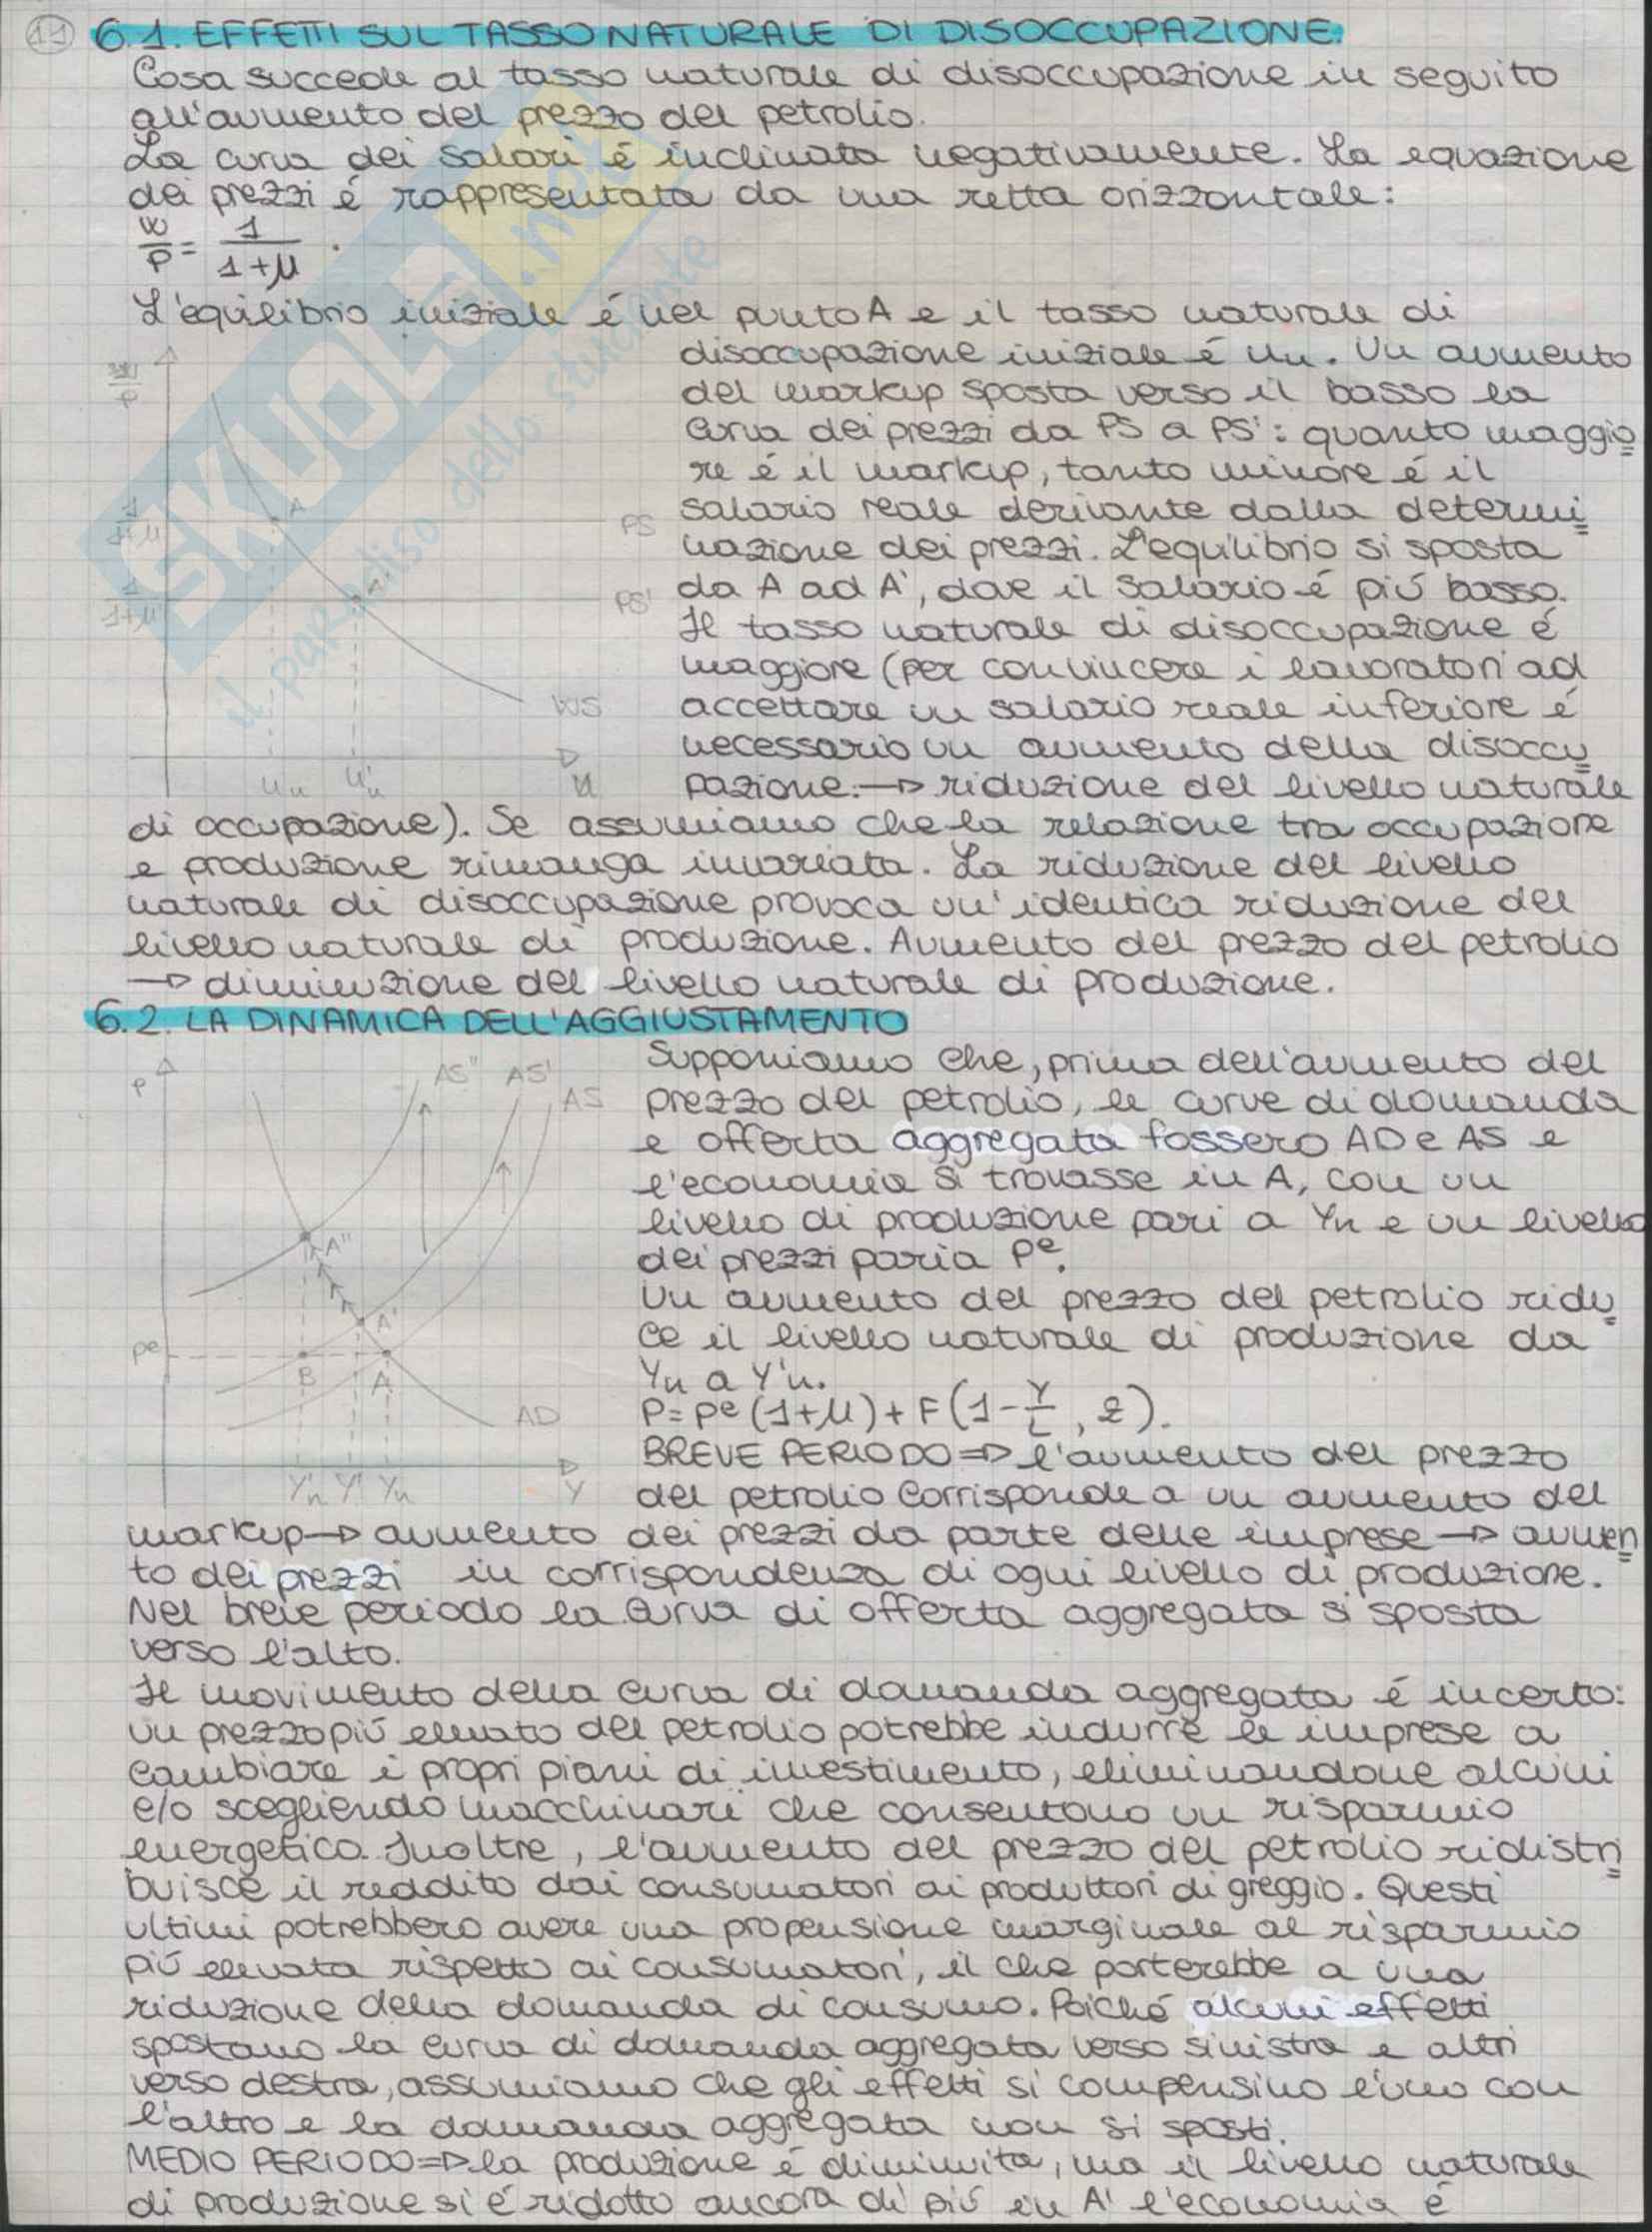 11 6.1. EFFETTI SUL TASSO NATURALE DI DISOCCUPAZIONE.
Cosa succede al tasso naturale di disoccupazione in seguito
all'aumento del prezzo del petrolio.
La curva dei salari é inclinata negativamente. La equazione
dei prezzi é rappresentata da una retta orizzontale:
W/P = 1/(1+μ).
L'equilibrio iniziale é nel punto A e il tasso naturale di
disoccupazione iniziale é un. Un aumento
del markup sposta verso il basso la
curva dei prezzi da PS a PS': quanto maggio
re é il markup, tanto minore é il
salario reale derivante dalla determi
nazione dei prezzi. L'equilibrio si sposta
da A ad A', dove il salario é piú basso.
Il tasso naturale di disoccupazione é
maggiore (per convincere i lavoratori ad
accettare un salario reale inferiore é
necessario un aumento della disoccu
pazione.→ riduzione del livello naturale
W/P
1/1+μ
A
PS
1/1+μ'
A'
PS'
WS
un
u'n
u
di occupazione). Se assumiamo che la relazione tra occupazione
e produzione rimanga invariata. La riduzione del livello
naturale di disoccupazione provoca un'identica riduzione del
livello naturale di produzione. Aumento del prezzo del petrolio
→ diminuzione del livello naturale di produzione.
6.2. LA DINAMICA DELL'AGGIUSTAMENTO
Supponiamo che, prima dell'aumento del
prezzo del petrolio, le curve di domanda
e offerta aggregata fossero AD e AS e
l'economia si trovasse in A, con un
livello di produzione pari a Yn e un livello
dei prezzi paria Pe.
Un aumento del prezzo del petrolio ridu
ce il livello naturale di produzione da
Yn a Y'n.
P= Pe (1+μ) + F (1 - Y/L, z).
BREVE PERIODO => l'aumento del prezzo
del petrolio corrisponde a un aumento del
P
AS"
AS'
AS
A"
A'
Pe
B
A
AD
Y'n
Y'
Yn
Y
markup → aumento dei prezzi da parte delle imprese → aumen
to dei prezzi in corrispondenza di ogni livello di produzione.
Nel breve periodo la curva di offerta aggregata si sposta
verso l'alto.
Il movimento della curva di domanda aggregata é incerto:
un prezzo piú elevato del petrolio potrebbe indurre le imprese a
cambiare i propri piani di investimento, eliminandone alcuni
e/o scegliendo macchinari che consentono un risparmio
energetico. Inoltre, l'aumento del prezzo del petrolio ridistri
buisce il reddito dai consumatori ai produttori di greggio. Questi
ultimi potrebbero avere una propensione marginale al risparmio
piú elevata rispetto ai consumatori, il che porterebbe a una
riduzione della domanda di consumo. Poiché alcuni effetti
spostano la curva di domanda aggregata verso sinistra e altri
verso destra, assumiamo che gli effetti si compensino l'uno con
l'altro e la domanda aggregata non si sposti.
MEDIO PERIODO => la produzione é diminuita, ma il livello naturale
di produzione si é ridotto ancora di piú in A' l'economia é
SKUOLA.net
il paradiso dello studente